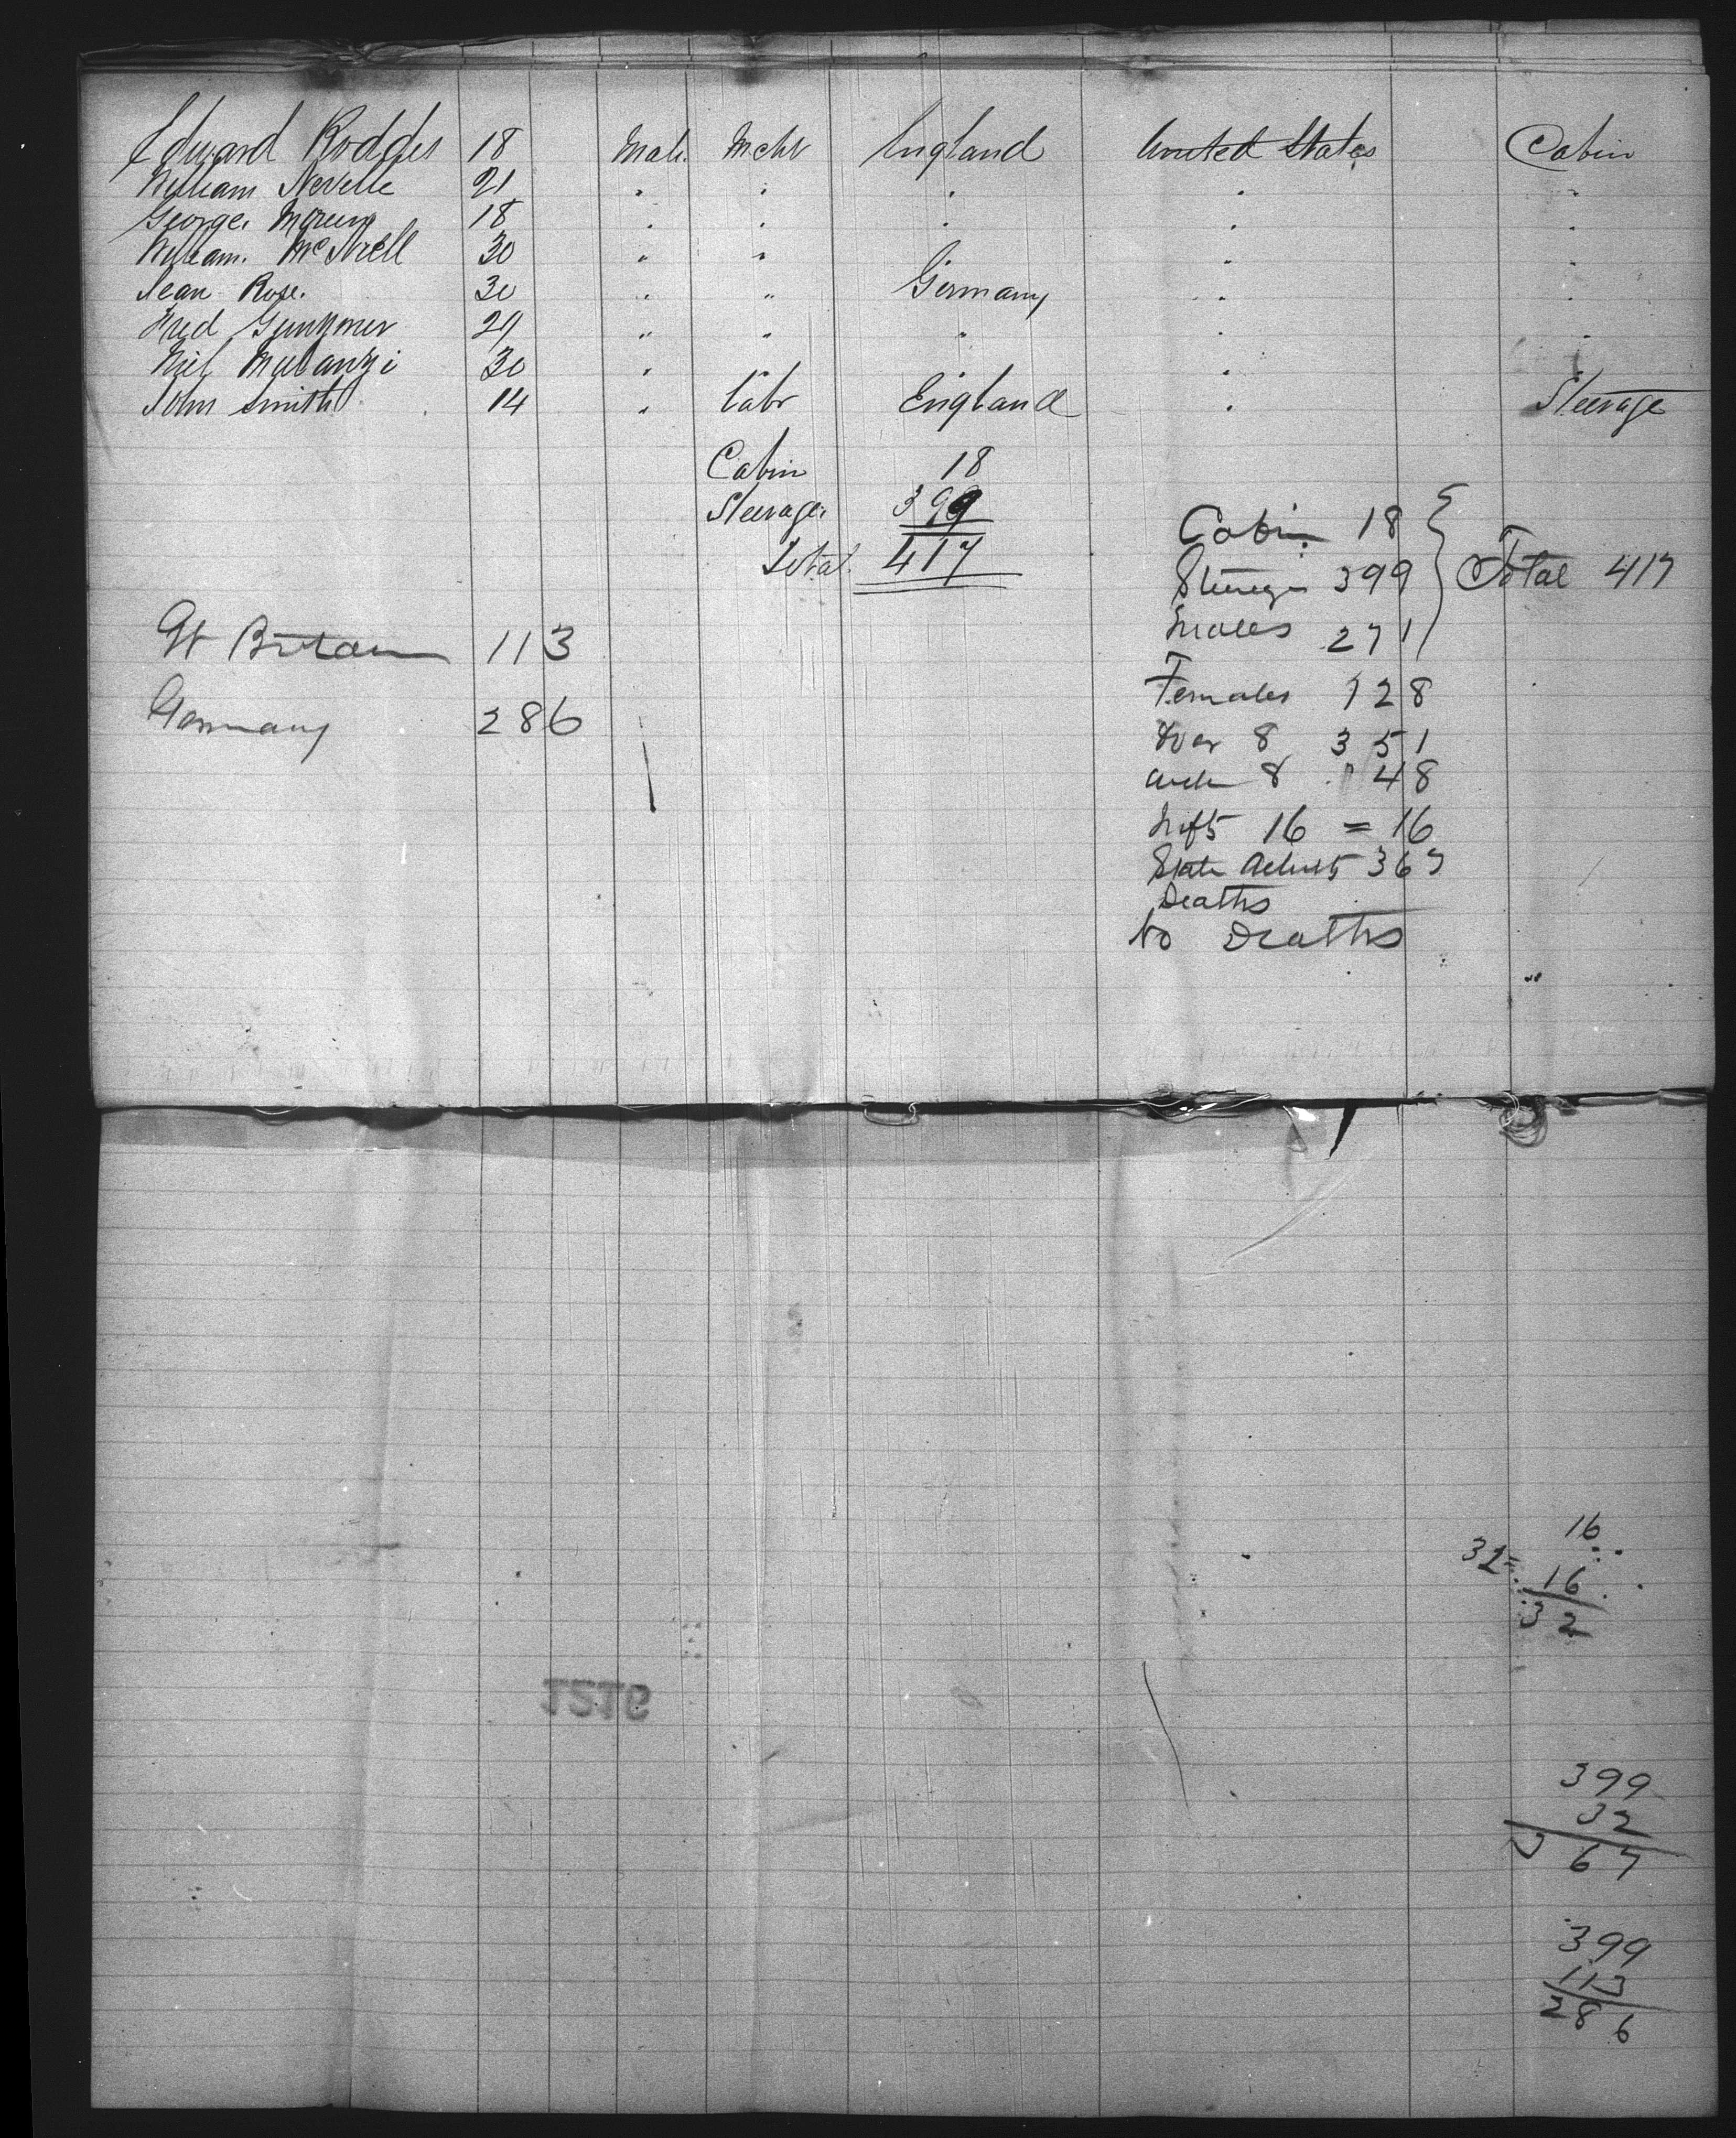 Edward Roddis 18 Male. Mcht England United States Cabin
William Nevelle 21 " " " " "
George 18 " " " " "
William. McNeill 30 " " " "
Jean Rose. 30 " " Germany " "
Fred 29 " " " " "
30 " " "
John Smith 14 " Labr England " Steerage
Cabin 18
Steerage. 399
Total. 417
Cabin 18
Steerage 399 } Total 417
Gt Britain 113
Males 271
Germany 286
Females 128
Over 8 351
Under 8 48
Infts 16 = 16
State Adults 367
Deaths
No Deaths
16
32= 16
32
1216
399
32
367
399
113
286